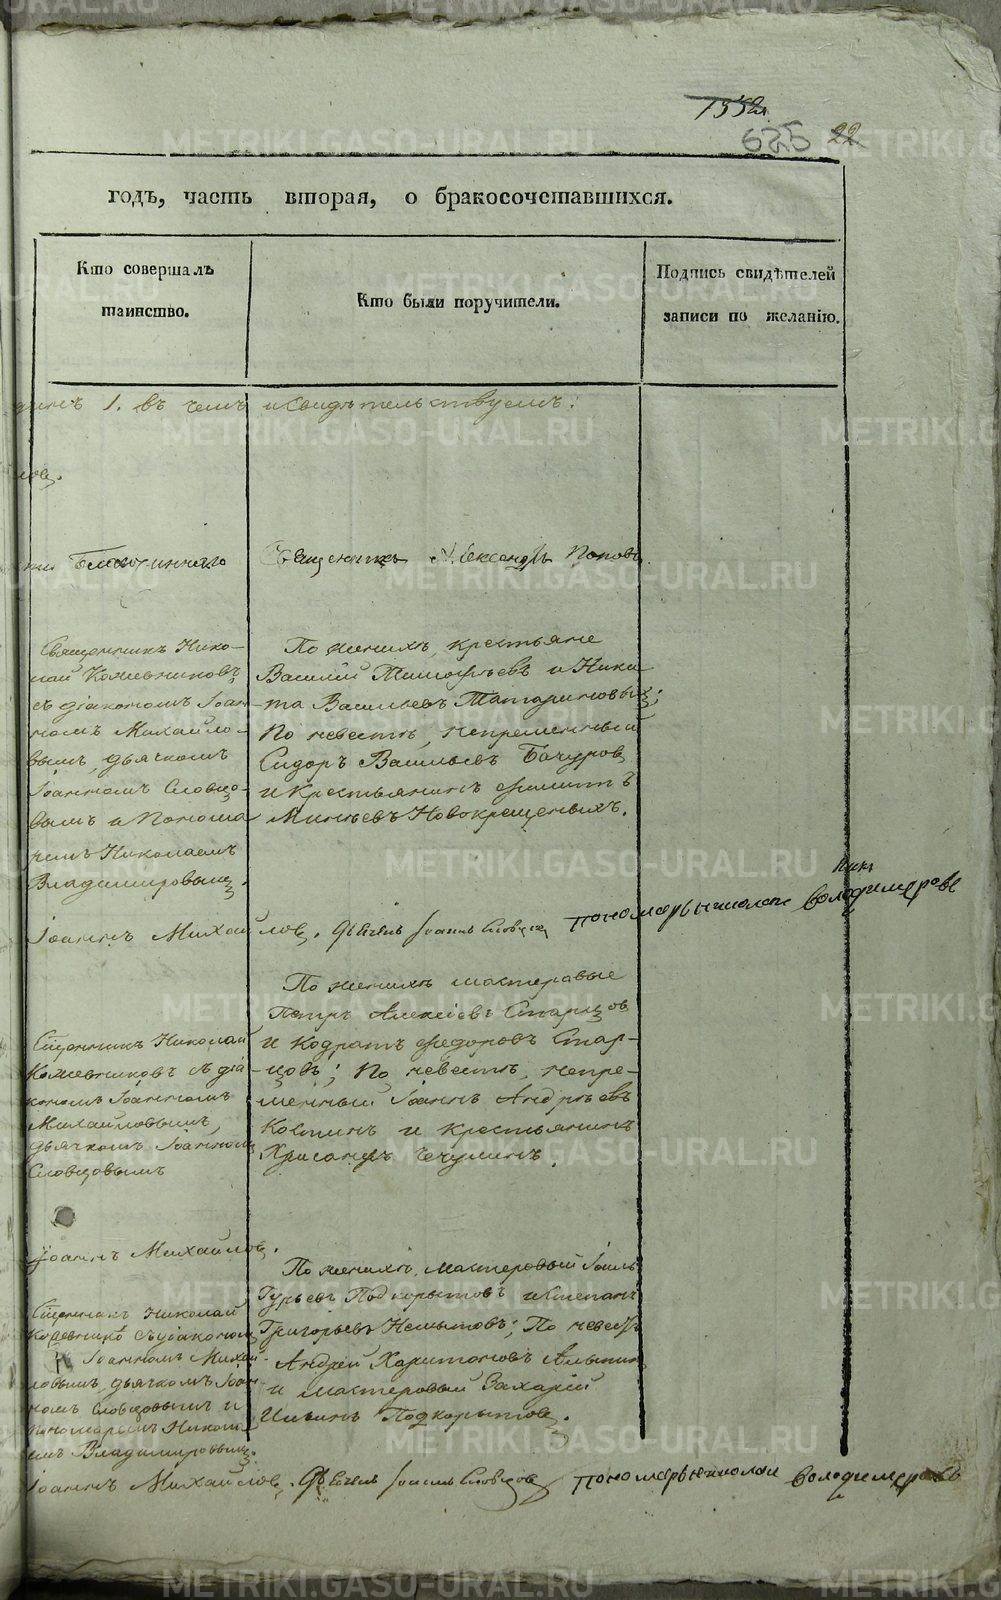 625 22
годъ, часть вторая, о бракосочетавшихся.
Кто совершалъ
таинство.
Кто были поручители.
Подпись свидѣтелей
записи по желанію.
1. въ чемъ и свидѣтельствуемъ:
Благочиннаго Священникъ Александръ Поповъ
Священникъ Нико-
лай Кожевниковъ
съ діакономъ Іоан-
номъ Михайло-
вымъ, дьячкомъ
Іоанномъ Словцо-
вымъ и Понома
ремъ Николаемъ
Владимировымъ.
По женихѣ, крестьяне
Василій Тимофѣевъ и Ники
та Васильевъ Татариновы;
По невестѣ, непременный
Сидоръ Васильевъ Бачуровъ
и крестьянинъ Филиптъ
Минѣевъ Новокрещеныхъ.
Іоаннъ Михайловъ. Дьячекъ Іоаннъ Словцовъ пономарь николай володимеровъ
Сщенникъ Николай
Кожевниковъ съ діа
кономъ Іоанномъ
Михайловымъ,
дьячкомъ Іоанномъ
Словцовымъ
По женихѣ мастеровые
Петръ Алексіевъ Старцовъ
и Кодратъ Федоровъ Стар-
цовъ; По невестѣ, непре-
менный Іоаннъ Андрѣевъ
Костинъ и крестьянинъ
Хрисанфъ Чечулинъ.
Іоаннъ Михайловъ.
Сщенникъ Николай
съ діакономъ
Іоанномъ Михай-
ловымъ, дьячкомъ Іоан-
номъ Словцовымъ и
пономаремъ Никола-
емъ Владимировымъ.
По женихѣ, мастеровый
Гурьевъ Подкорытовъ и Степанъ
Григорьевъ Немытовъ; По невестѣ
Андрей Харитоновъ
и мастеровый Захарій
Ильинъ Подкорытовъ.
Іоаннъ Михайловъ. Дьячекъ Іоаннъ Словцовъ пономарь николай володимеровъ
METRIKI.GASO-URAL.RU